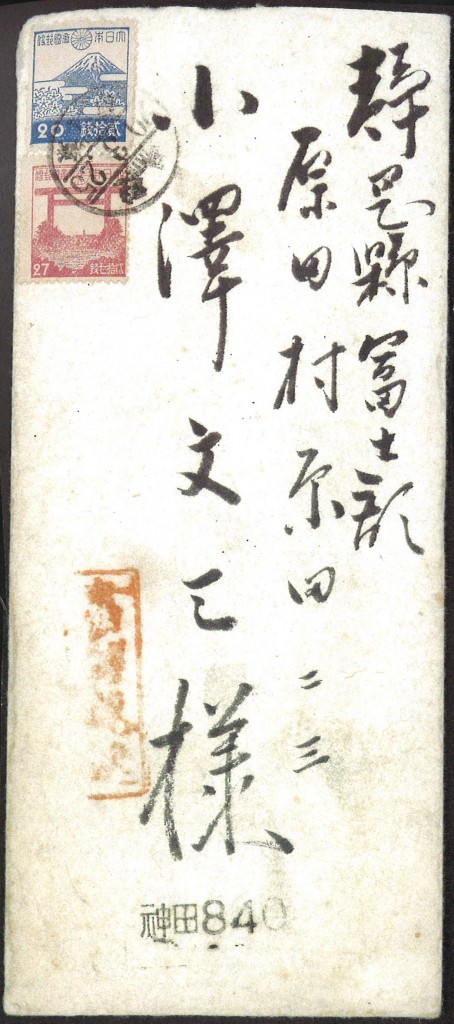 静岡縣富士郡
原田村原田二三
小澤文様
大日本帝國郵便
20 貳拾錢
27 貳拾七錢
神田840